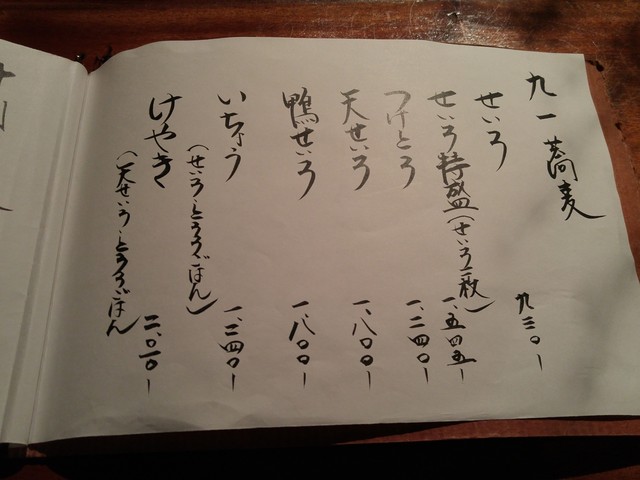 九一蕎麦
せいろ 九三〇ー
せいろ特盛(せいろ二枚) 一、五四五ー
つけとろ 一、二四〇ー
天せいろ 一、八〇〇ー
鴨せいろ 一、八〇〇ー
いちょう 一、二四〇ー
(せいろ・とろろごはん)
けやき 二、〇一〇ー
(天せいろ・とろろごはん)